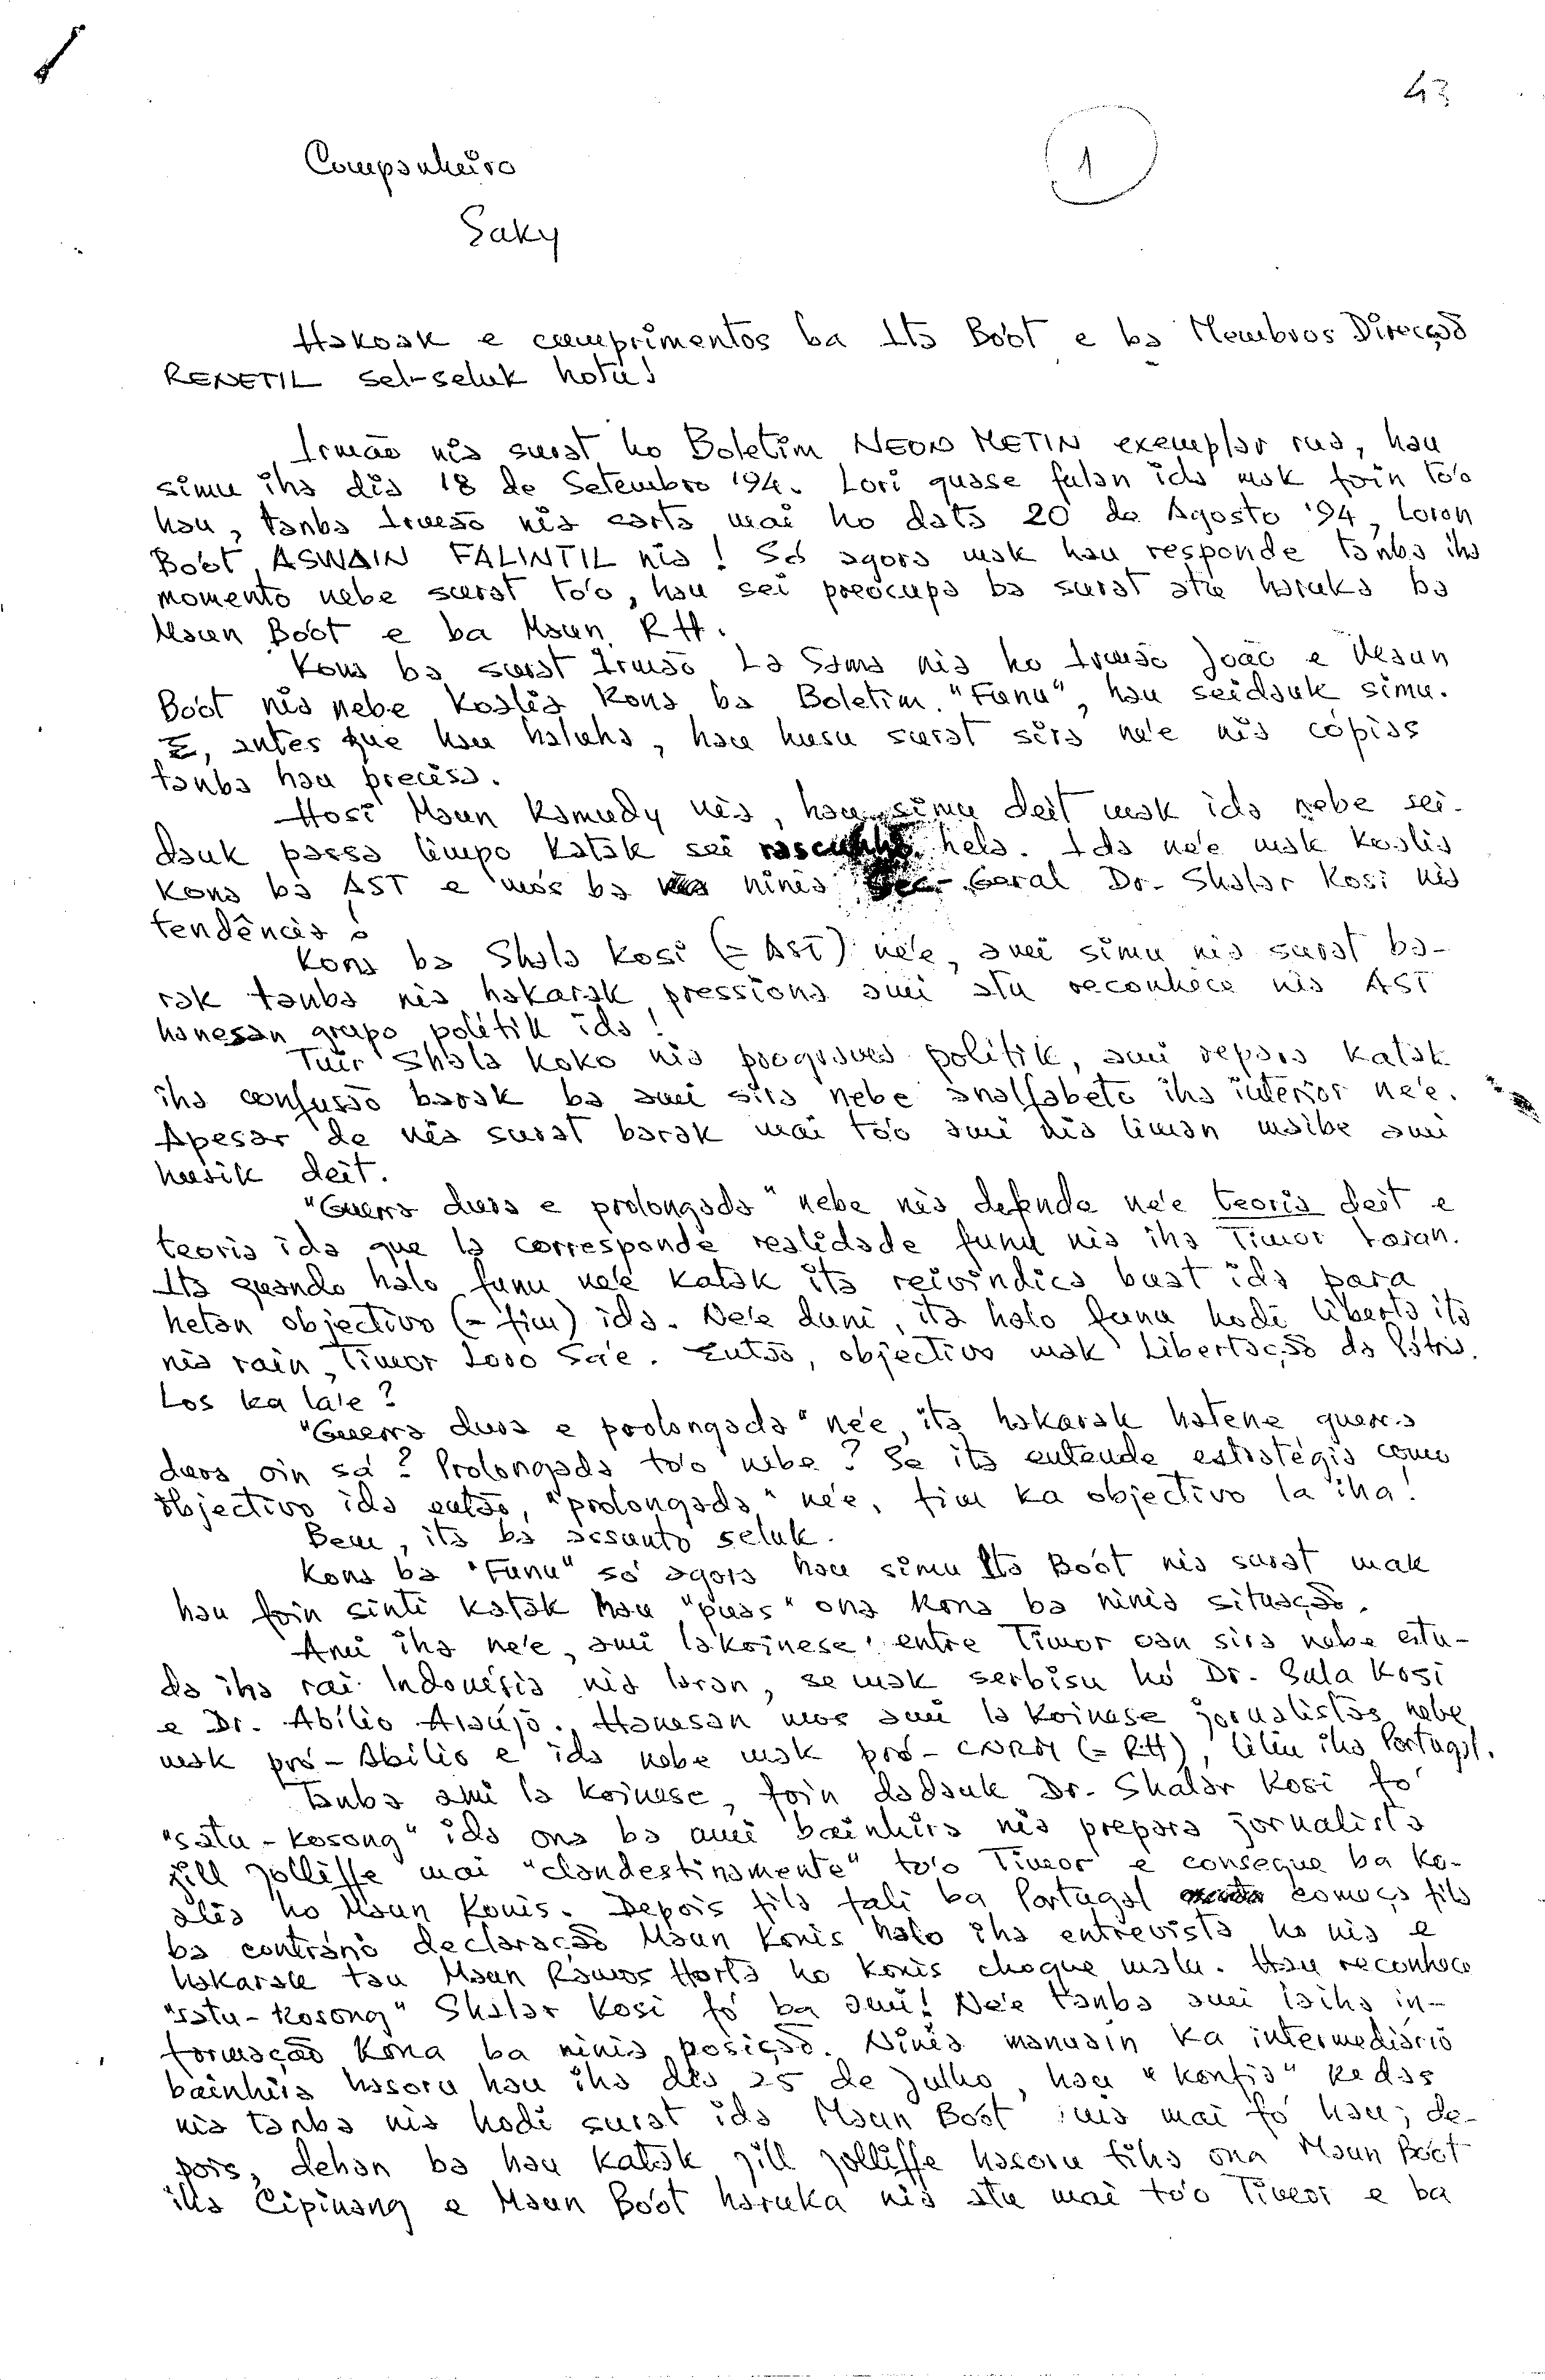 43
1
Companheiro
Saky
Hakoak e cumprimentos ba Ita Boót e ba Membros Direcção
RENETIL sel-seluk hotu!
Irmão nia surat ho Boletim NEON METIN exemplar rua, hau
simu iha dia 18 de Setembro '94. Lori quase fulan ida mak foin to'o
hau, tanba Irmão nia carta mai ho data 20 de Agosto '94, Loron
Boót ASWAIN FALINTIL nia! Só agora mak hau responde tanba iha
momento nebe surat to'o, hau sei preocupa ba surat atu haruka ba
Maun Boót e ba Maun RH.
Kona ba surat Irmão La Sama nia ho Irmão João e Maun
Boót nia nebe koalia kona ba Boletim "Funu", hau seidauk simu.
E, antes que hau haluha, hau husu surat sira ne'e nia cópias
tanba hau precisa.
Hosi Maun Kamudy nia, hau simu deit mak ida nebe sei-
dauk passa limpo katak sei rascunho hela. Ida ne'e mak koalia
kona ba AST e mós ba ninia Sec-Geral Dr. Shalar Kosi nia
tendência.
Kona ba Shala Kosi (= AST) ne'e, ami simu nia surat ba-
rak tanba nia hakarak pressiona ami atu reconhece nia AST
hanesan grupo politik ida!
Tuir Shala koko nia programa politik, ami repara katak
iha confusão barak ba ami sira nebe analfabeto iha interior ne'e.
Apesar de nia surat barak mai to'o ami nia liman maibe ami
husik deit.
"Guerra dura e prolongada" nebe nia defende ne'e teoria deit e
teoria ida que la corresponde realidade funu nia iha Timor laran.
Ita quando halo funu ne'e katak ita reivindica buat ida para
hetan objectivo (= fim) ida. Ne'e duni, ita halo funu hodi liberta ita
nia rain, Timor Loro Sa'e. Então, objectivo mak Libertação da Pátria.
Los ka la'e?
"Guerra dura e prolongada" ne'e, ita hakarak hatene guerra
dura oin sá? Prolongada to'o nebe? Se ita entende estratégia como
objectivo ida então, "prolongada" ne'e, fim ka objectivo la iha!
Bem, ita ba assunto seluk.
Kona ba "Funu" só agora hau simu Ita Boót nia surat mak
hau foin sinti katak hau "puas" ona kona ba ninia situação.
Ami iha ne'e, ami la koinese entre Timor oan sira nebe estu-
da iha rai Indonésia nia laran, se mak serbisu ho Dr. Sala Kosi
e Dr. Abílio Araújo. Hanesan mos ami la koinese jornalistas nebe
mak pró-Abílio e ida nebe mak pró-CNRM (= RH), liliu iha Portugal.
Tanba ami la koinese, foin dadauk Dr. Shalar Kosi fó
"satu-kosong" ida ona ba ami bainhira nia prepara jornalista
Jill Jolliffe mai "clandestinamente" to'o Timor e consegue ba ko-
alia ho Maun Konis. Depois fila fali ba Portugal começa fila
ba contrário declaração Maun Konis halo iha entrevista ho nia e
hakarak tau Maun Ramos Horta ho Konis choque malu. Hau reconhece
"satu-kosong" Shalar Kosi fó ba ami! Ne'e tanba ami laiha in-
formação kona ba ninia posição. Ninia manusin ka intermediário
bainhira hasoru hau iha dia 25 de Julho, hau "konfia" kedas
nia tanba nia hodi surat ida Maun Boót nia mai fó hau; de-
pois, dehan ba hau katak Jill Jolliffe hasoru tiha ona Maun Boót
iha Cipinang e Maun Boót haruka nia atu mai to'o Timor e ba